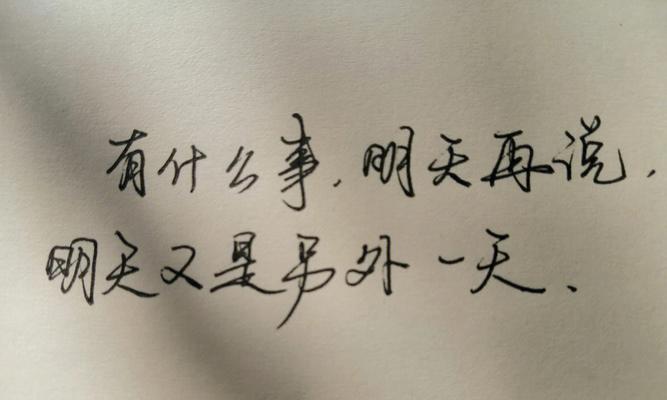 有什么事,明天再说,
明天又是另外一天、